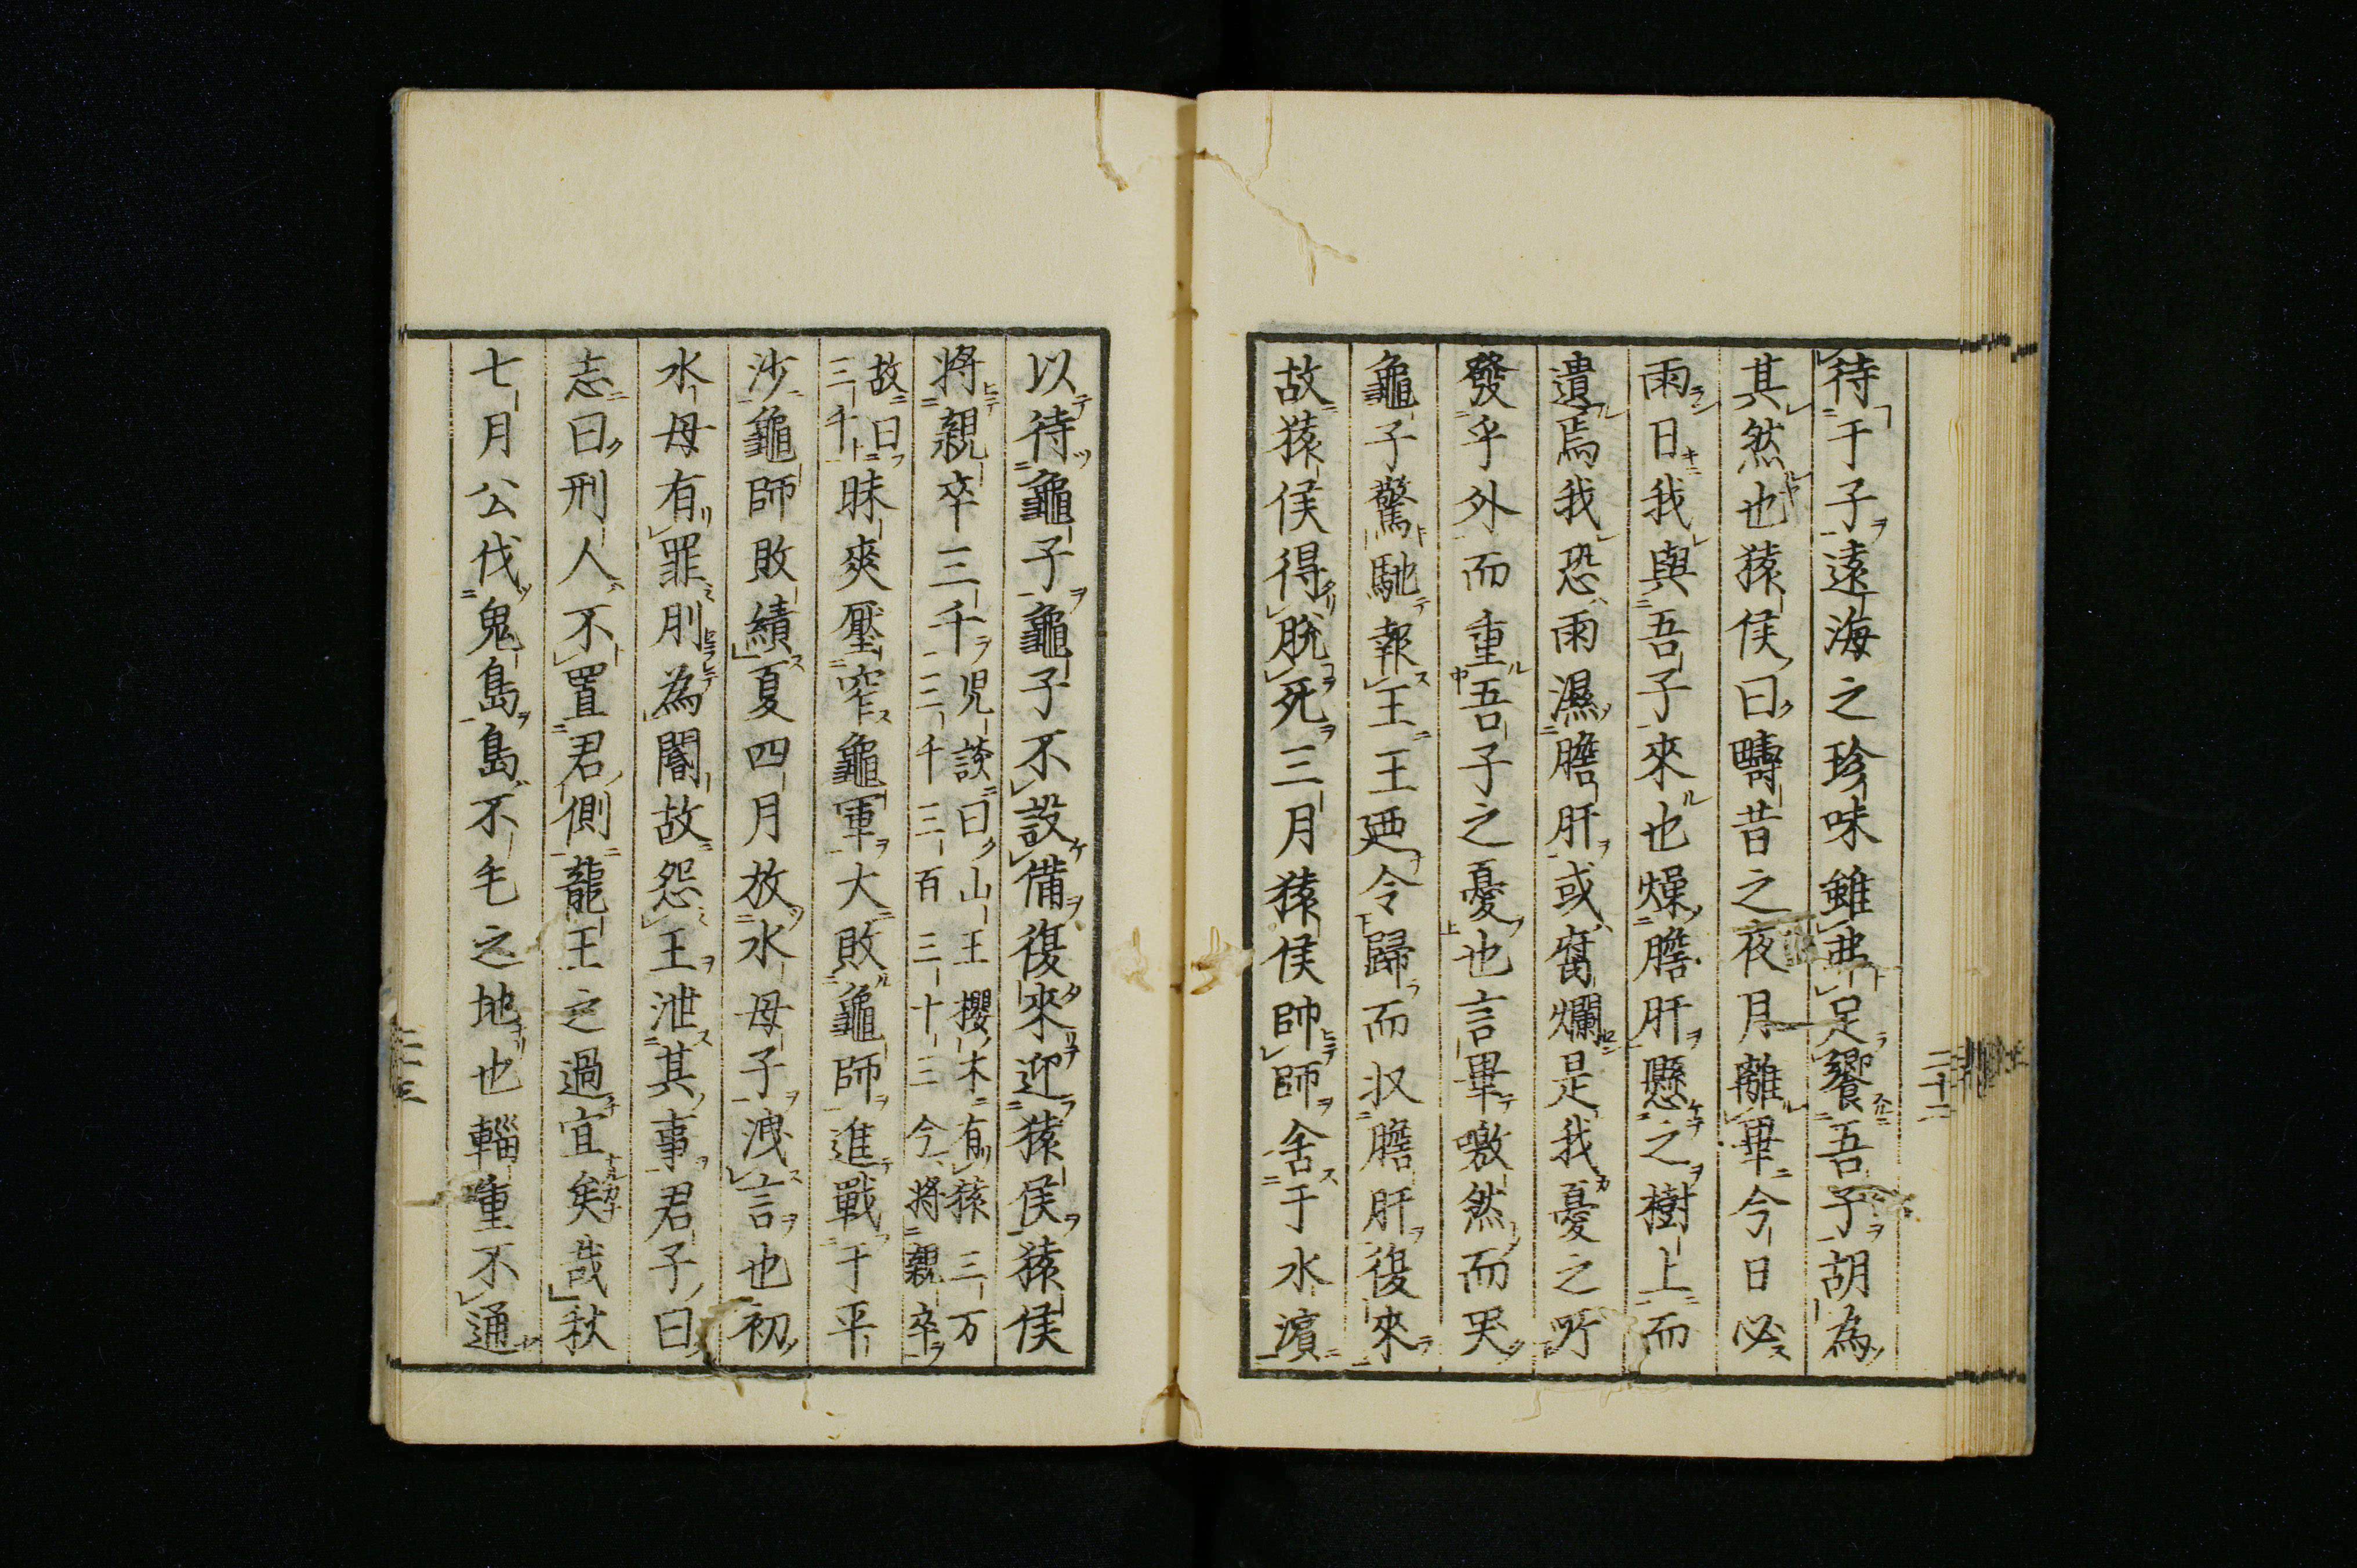 待于子遠海之珍味雖弗足饗吾子胡為
其然也猿侯曰疇昔之夜月離畢今日必
雨日我與吾子來也燥膽肝懸之樹上而
遺焉我恐雨濕膽肝或腐爛是我憂之所
發乎外而重吾子之憂也言畢嗷然而哭
龜子驚馳報王王廼令歸而収膽肝復來
故猿侯得脫死三月猿侯帥師舍于水濱
二十二
以待龜子龜子不設備復來迎猿侯猿侯
將親卒三千児談曰山王櫻木有猿三万三千三百三十三今將親卒
故曰三千昧爽壓窄龜軍大敗龜師進戰于平
沙龜師敗績夏四月放水母子洩言也初
水母有罪刖為閽故怨王泄其事君子曰
志曰刑人不置君側龍王之過宜矣哉秋
七月公伐鬼島島不毛之地也輜重不通